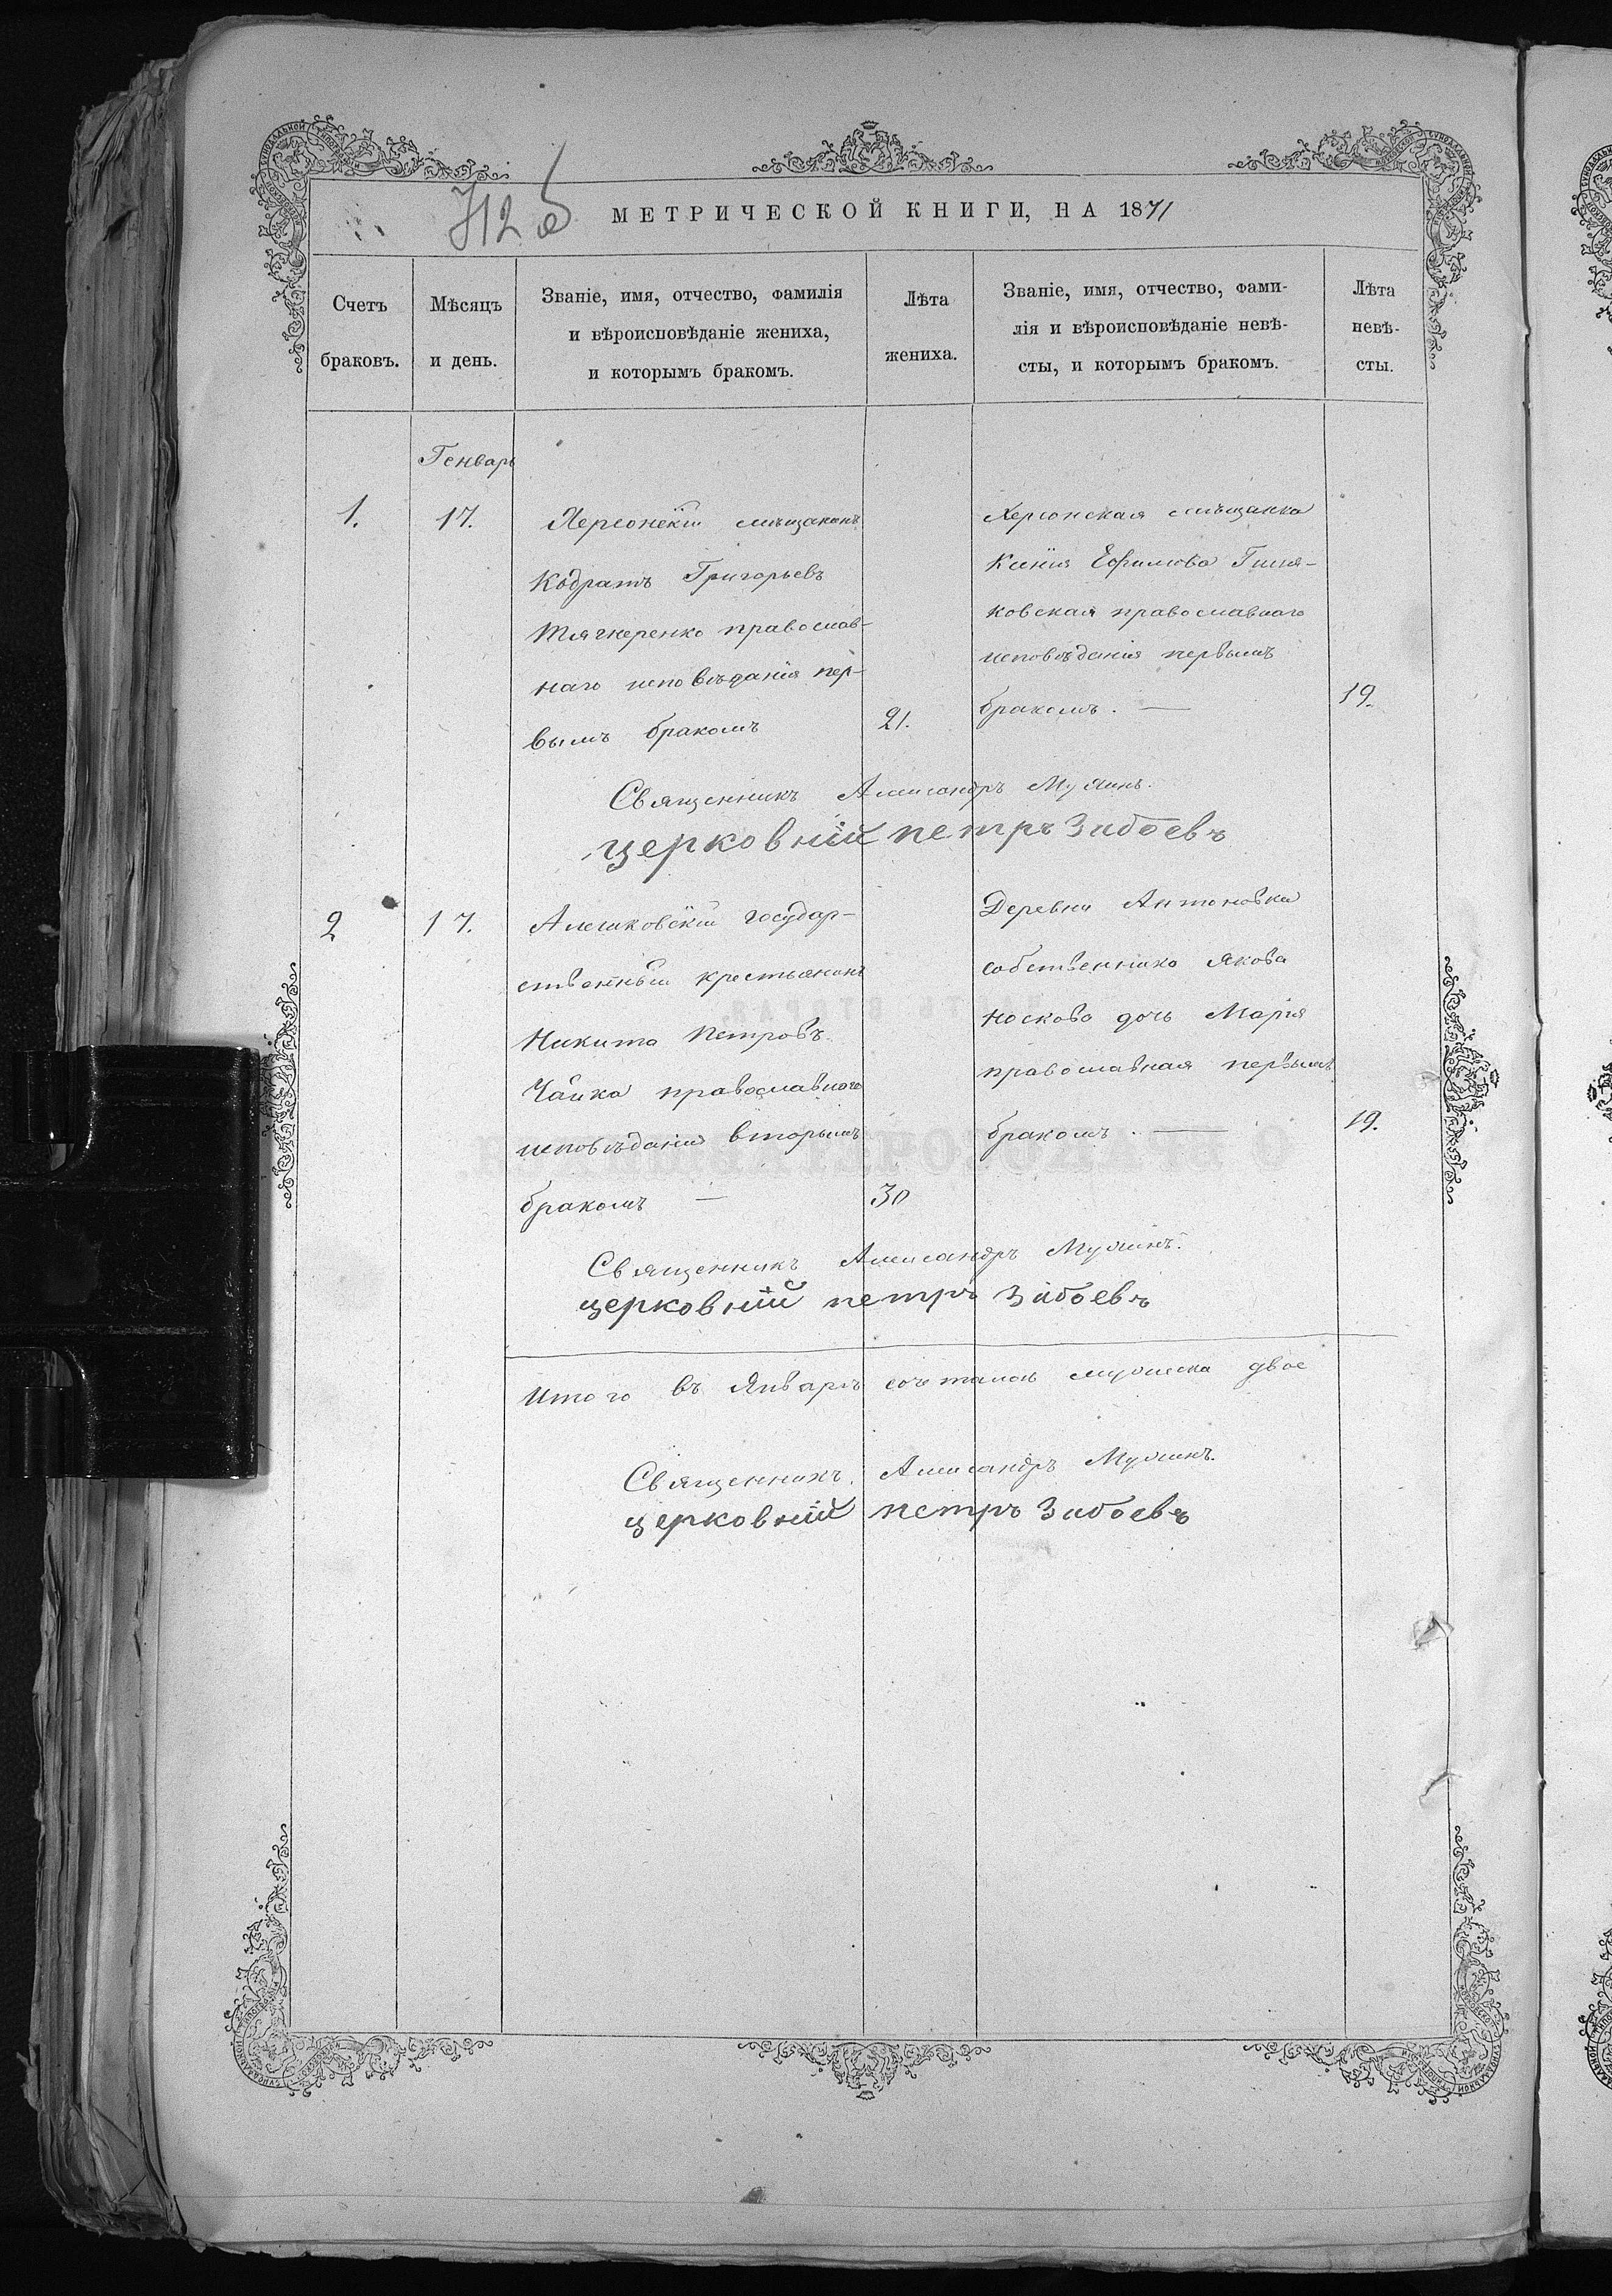 МЕТРИЧЕСКОЙ КНИГИ, НА 1871
Счетъ браковъ.
Мѣсяцъ и день.
Званіе, имя, отчество, фамилія
и вѣроисповѣданіе жениха,
и которымъ бракомъ.
Лѣта жениха.
Званіе, имя, отчество, фами-
лія и вѣроисповѣданіе невѣ-
сты, и которымъ бракомъ.
Лѣта невѣ-
сты.
Генварь
1.
17.
Херсонскій мѣщанинъ
Кодратъ Григорьевъ
православ-
наго исповѣданія пер-
вымъ бракомъ
21.
Херсонская мѣщанка
Ксенія Ефимова
ковская православнаго
исповѣданія первымъ
бракомъ. —
19.
Священникъ Александръ
церковній петръ Забоевъ
2
17.
Алешковскій государ-
ственный крестьянинъ
Никита Петровъ
Чайка православнаго
исповѣданія вторымъ
бракомъ —
30
Деревни Антоновки
собственника Якова
Носкова дочь Марія
православная первымъ
бракомъ. —
19.
Священникъ Александръ
церковній петръ Забоевъ
Итого въ Январѣ двое
Священникъ Александръ
церковній петръ Забоевъ